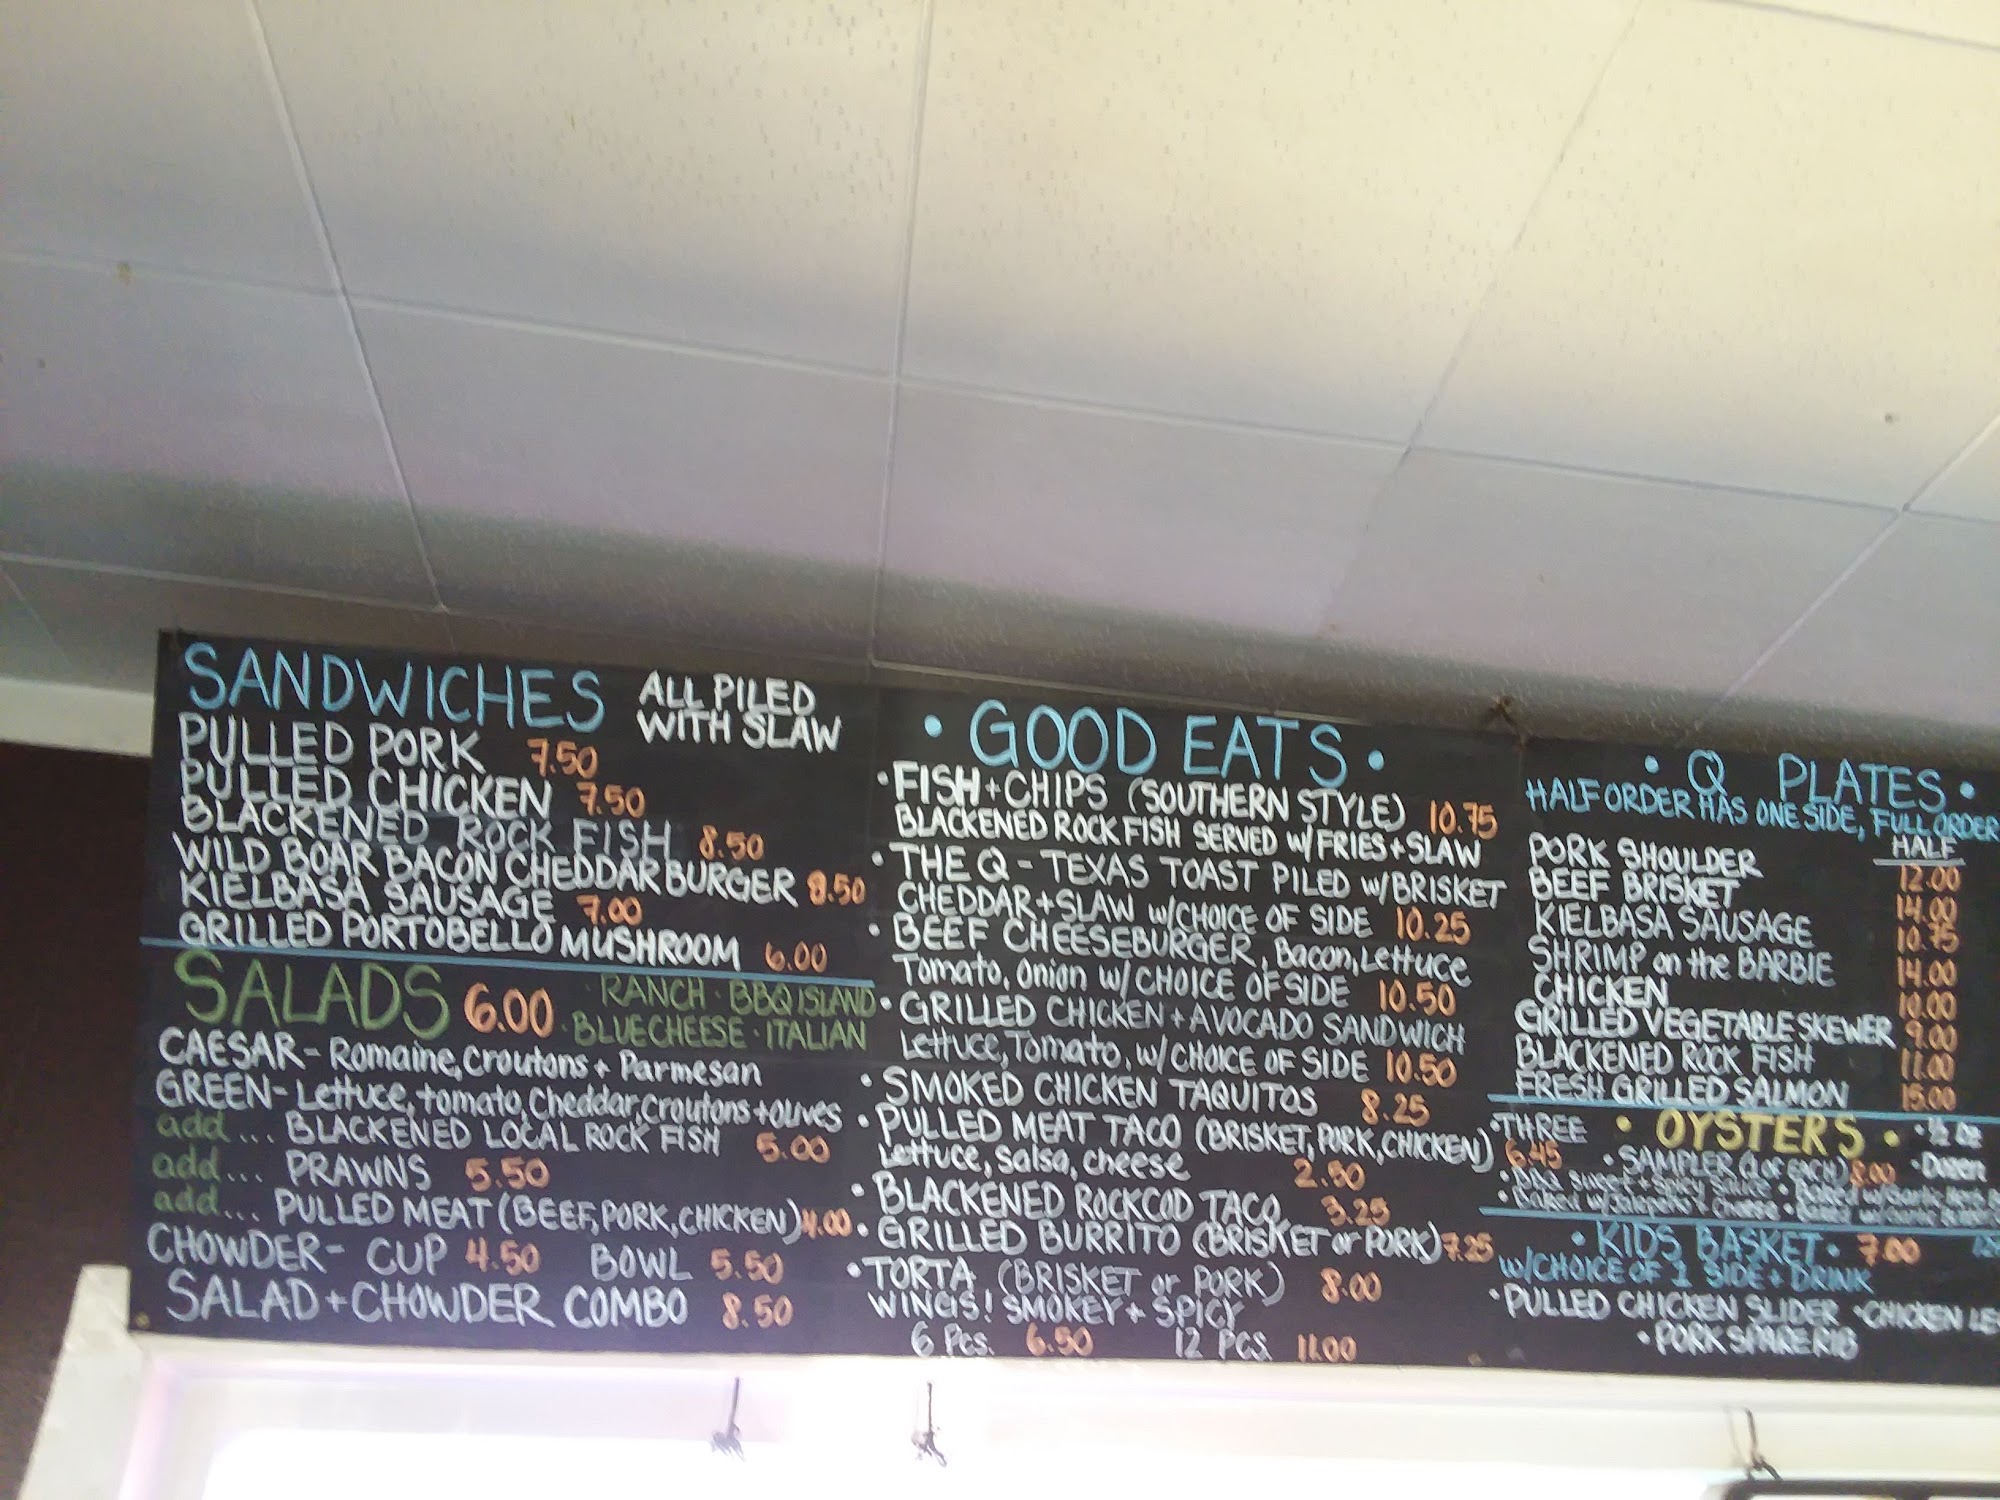 SANDWICHES ALL PILED
WITH SLAW
PULLED PORK 7.50
PULLED CHICKEN 7.50
BLACKENED ROCK FISH 8.50
WILD BOAR BACON CHEDDAR BURGER 8.50
KIELBASA SAUSAGE 7.00
GRILLED PORTOBELLO MUSHROOM 6.00
SALADS 6.00 · RANCH · BBQ ISLAND
· BLUE CHEESE · ITALIAN
CAESAR - Romaine, Croutons + Parmesan
GREEN - Lettuce, tomato, Cheddar, Croutons + olives
add... BLACKENED LOCAL ROCK FISH 5.00
add... PRAWNS 5.50
add... PULLED MEAT (BEEF, PORK, CHICKEN) 4.00
CHOWDER - CUP 4.50 BOWL 5.50
SALAD + CHOWDER COMBO 8.50
· GOOD EATS ·
· FISH + CHIPS (SOUTHERN STYLE) 10.75
BLACKENED ROCK FISH SERVED w/ FRIES + SLAW
· THE Q - TEXAS TOAST PILED w/ BRISKET
CHEDDAR + SLAW w/ CHOICE OF SIDE 10.25
· BEEF CHEESEBURGER, Bacon, Lettuce
Tomato, Onion w/ CHOICE OF SIDE 10.50
· GRILLED CHICKEN + AVOCADO SANDWICH
Lettuce, Tomato, w/ CHOICE OF SIDE 10.50
· SMOKED CHICKEN TAQUITOS 8.25
· PULLED MEAT TACO (BRISKET, PORK, CHICKEN)
Lettuce, Salsa, cheese 2.50
· BLACKENED ROCKCOD TACO 3.25
· GRILLED BURRITO (BRISKET or PORK) 7.25
· TORTA (BRISKET or PORK) 8.00
WINGS! SMOKEY + SPICY
6 Pcs. 6.50 12 PCS. 11.00
· Q PLATES ·
HALF ORDER HAS ONE SIDE, FULL ORDER
HALF
PORK SHOULDER 12.00
BEEF BRISKET 14.00
KIELBASA SAUSAGE 10.75
SHRIMP on the BARBIE 14.00
CHICKEN 10.00
GRILLED VEGETABLE SKEWER 9.00
BLACKENED ROCK FISH 11.00
FRESH GRILLED SALMON 15.00
· THREE 6.45 · OYSTERS · · ½ Dz
· SAMPLER (1 of EACH) 8.00 · Dozen
· BBQ Sweet + Spicy Sauce · Baked w/ Garlic
· Baked w/ Jalapeño + Cheese · Baked w/ Garlic
· KIDS BASKET · 7.00
w/ CHOICE OF 1 SIDE + DRINK
· PULLED CHICKEN SLIDER · CHICKEN
· PORK SPARE RIB